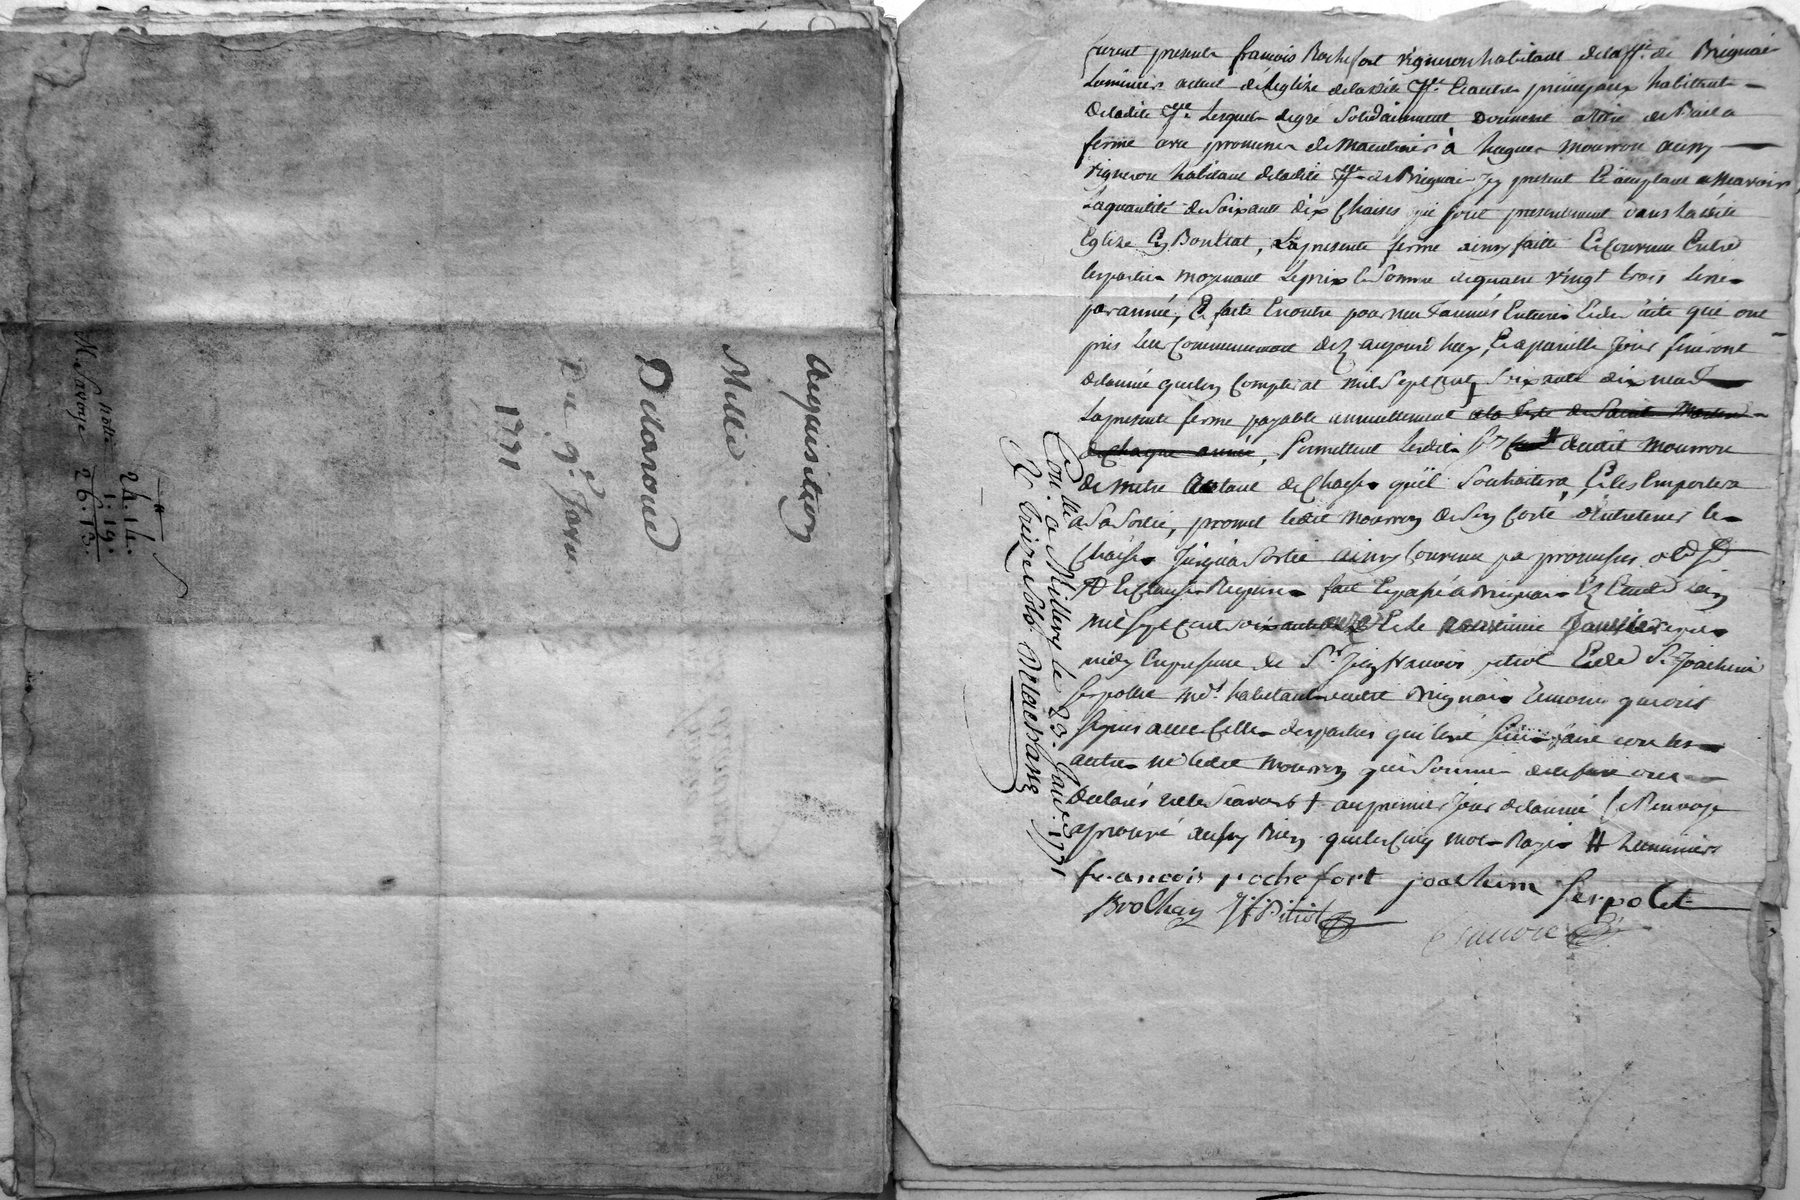 Acquisition
Millié
Delaroue
Du 9e Janv
1771
24. 14.
1. 19.
26. 13.
furent presents francois Rochefort vigneron habitant de la psse. de Brignais
Luminier actuel de l'eglize de ladite psse. Et autres principaux habitants
de ladite psse. Lesquels de gré solidairement donnent a titre de Bail a
ferme avec promesse de maintenir à hugues mourron aussy
vigneron habitant de ladite psse. de Brignais Icy present Et acceptant a scavoir
La quantité de soixante dix Chaises qui sont presentement dans Ladite
Eglize Et Bon Etat, La presente ferme ainsy faitte Et Convenue Entre
les parties moyenant Le prix Et Somme de quatre vingt trois Livres
par année, Et faite En outre pour neuf années Entieres Et de suite qui ont
pris Leur Commencement dez aujourd'huy, Et a pareille Jour finiront
de l'année que l'on Comptera mil Sept Cent Soixante dix neuf
La presente ferme payable annuellement a la feste de Saint Martin
de chaque année, Permettent Lesdits srs dudit Mourron
de mettre Autant de Chaises qu'il Souhaitera, Et les Emportera
a Sa Sortie, promet ledit Mourron de son Coté d'Entretenir les
Chaises Jusqu'a Sortie ainsy Convenu par promesses
Et Clauses Requises fait Et passé a Brignais En Etude L'an
mil Sept Cent soixante onze Et le neuvieme Janvier apres
midy En presence de Sr. Jean francois pitiot Et de Sr. Joachim
Serpollet md. habitants audit Brignais temoins qui ont
signés avec Celles des parties qui l'ont Sceu faire non les
autres ne ledit Mourron qui Sommés de le faire ont
declarés ne le Scavoir † au premier Jour de l'année Le Renvoye
aprouvé aussy Bien que les Cinq mots Rayés # Luminier
francois rochefort joachim Serpolet
Brolhay JfPitiot
Con.lé a Millery le 23. Janv. 1771
R. treize sols Delachassez